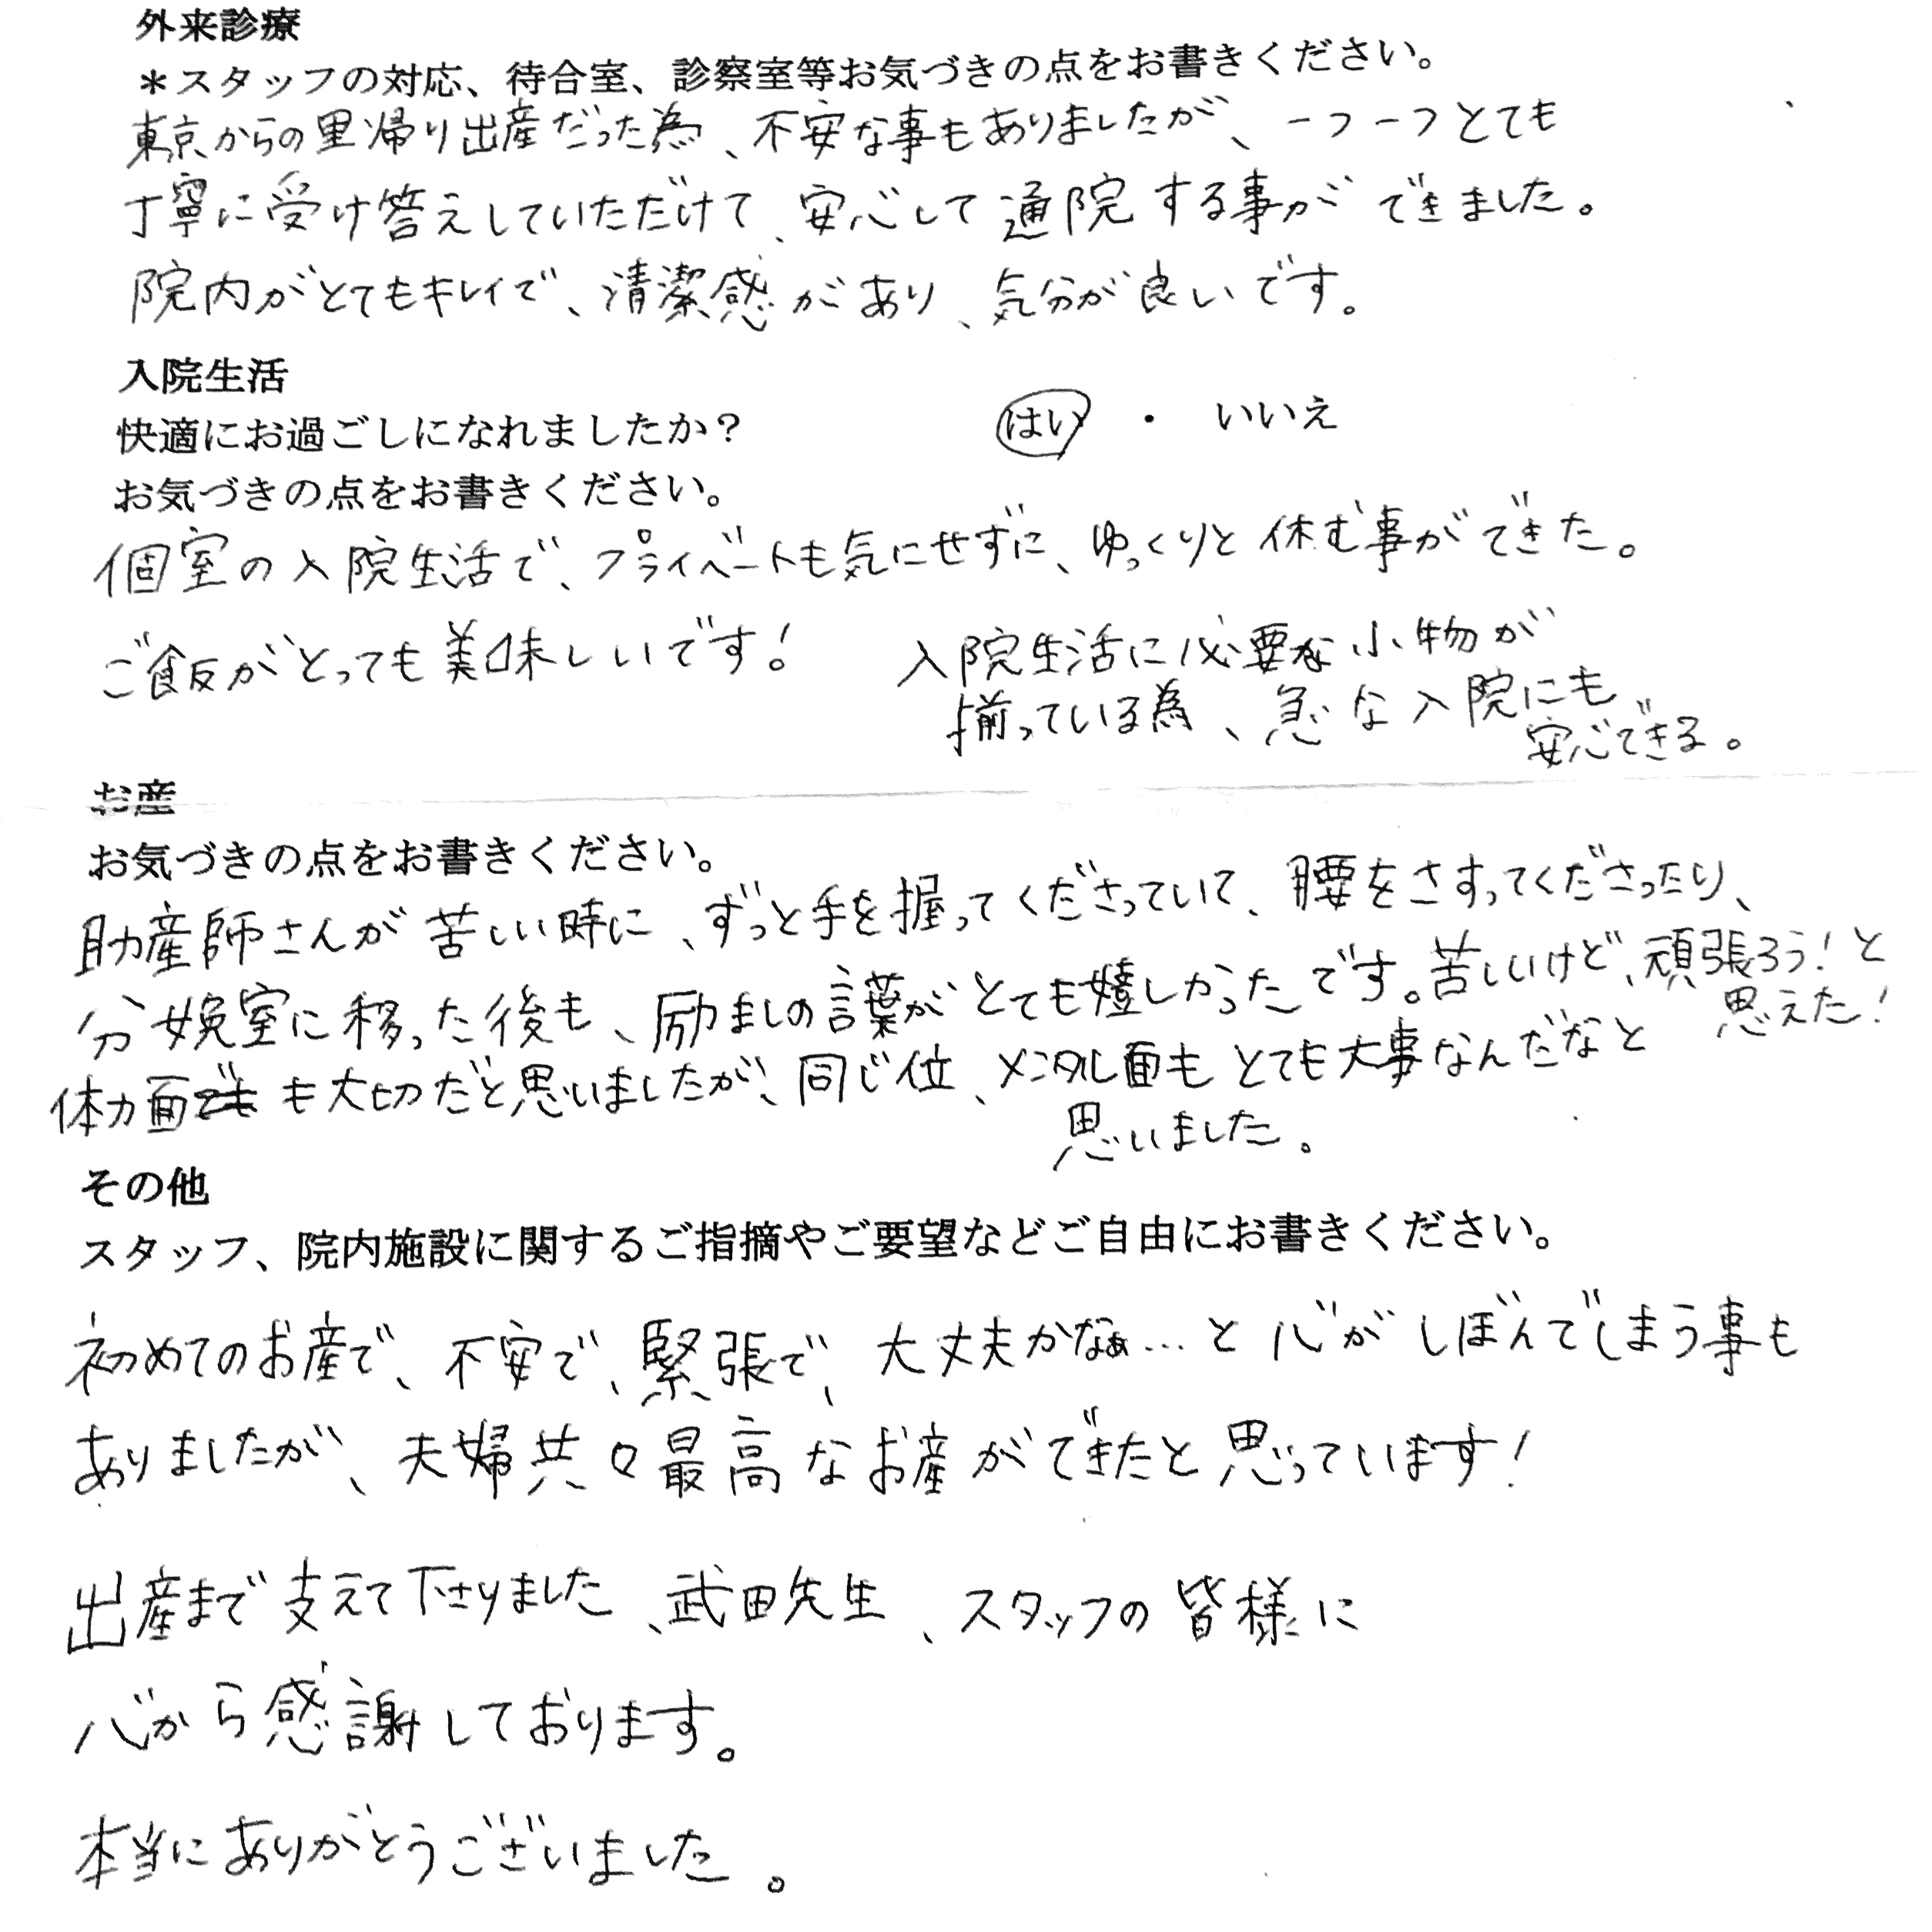 外来診療
＊スタッフの対応、待合室、診察室等お気づきの点をお書きください。
東京からの里帰り出産だった為、不安な事もありましたが、一つ一つとても
丁寧に受け答えしていただけて、安心して通院する事ができました。
院内がとてもキレイで、清潔感があり、気分が良いです。
入院生活
快適にお過ごしになれましたか？　はい ・ いいえ
お気づきの点をお書きください。
個室の入院生活で、プライベートも気にせずに、ゆっくりと休む事ができた。
ご飯がとっても美味しいです！
入院生活に必要な小物が
揃っている為、急な入院にも
安心できる。
お産
お気づきの点をお書きください。
助産師さんが苦しい時に、ずっと手を握ってくださっていて、腰をさすってくださったり、
分娩室に移った後も、励ましの言葉がとても嬉しかったです。苦しいけど、頑張ろう！と
思えた！
体力面も大切だと思いましたが、同じ位、メンタル面もとても大事なんだなと
思いました。
その他
スタッフ、院内施設に関するご指摘やご要望などご自由にお書きください。
初めてのお産で、不安で、緊張で、大丈夫かなぁ…と心がしぼんでしまう事も
ありましたが、夫婦共々最高なお産ができたと思っています！
出産まで支えて下さりました、武田先生、スタッフの皆様に
心から感謝しております。
本当にありがとうございました。